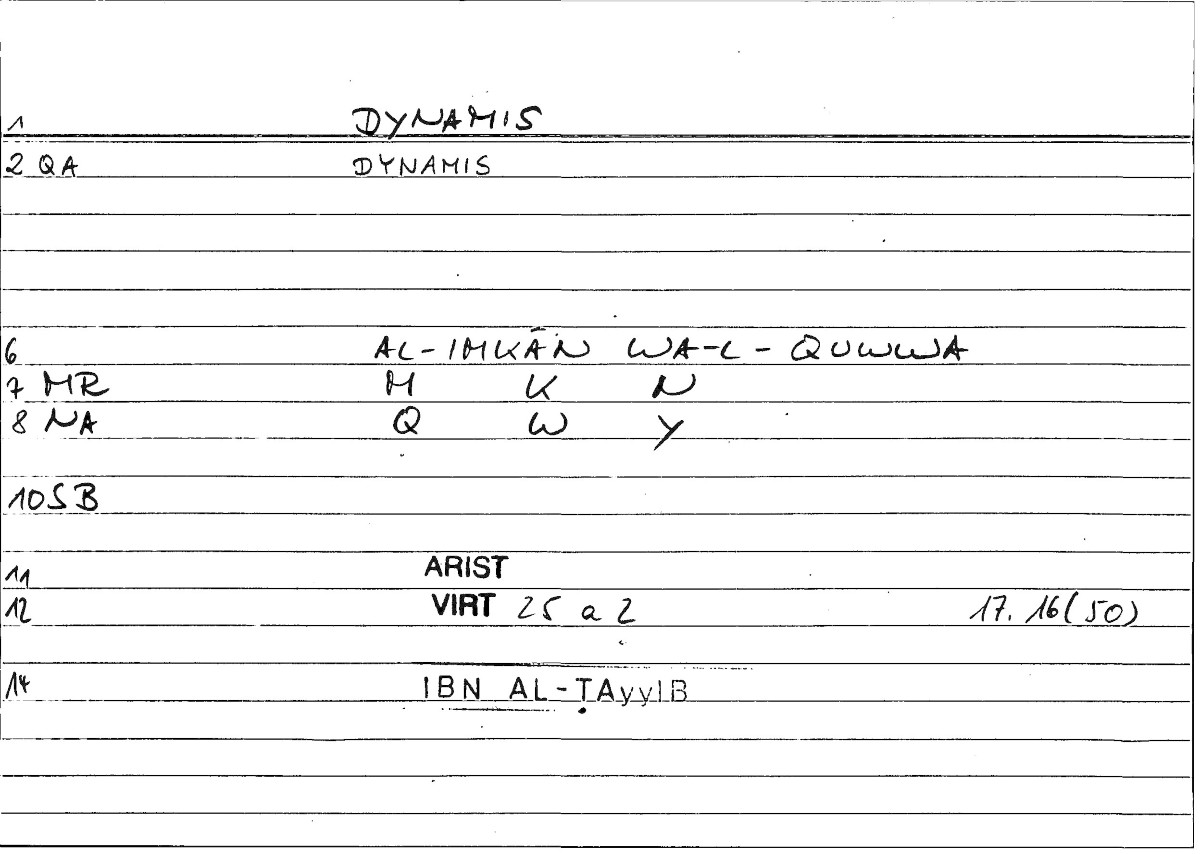 1 DYNAMIS
2 QA DYNAMIS
6 AL-IMKĀN WA-L-QUWWA
7 MR M K N
8 NA Q W Y
10 SB
11 ARIST
12 VIRT 25 a 2 17.16(50)
14 IBN AL-ṬAyyIB